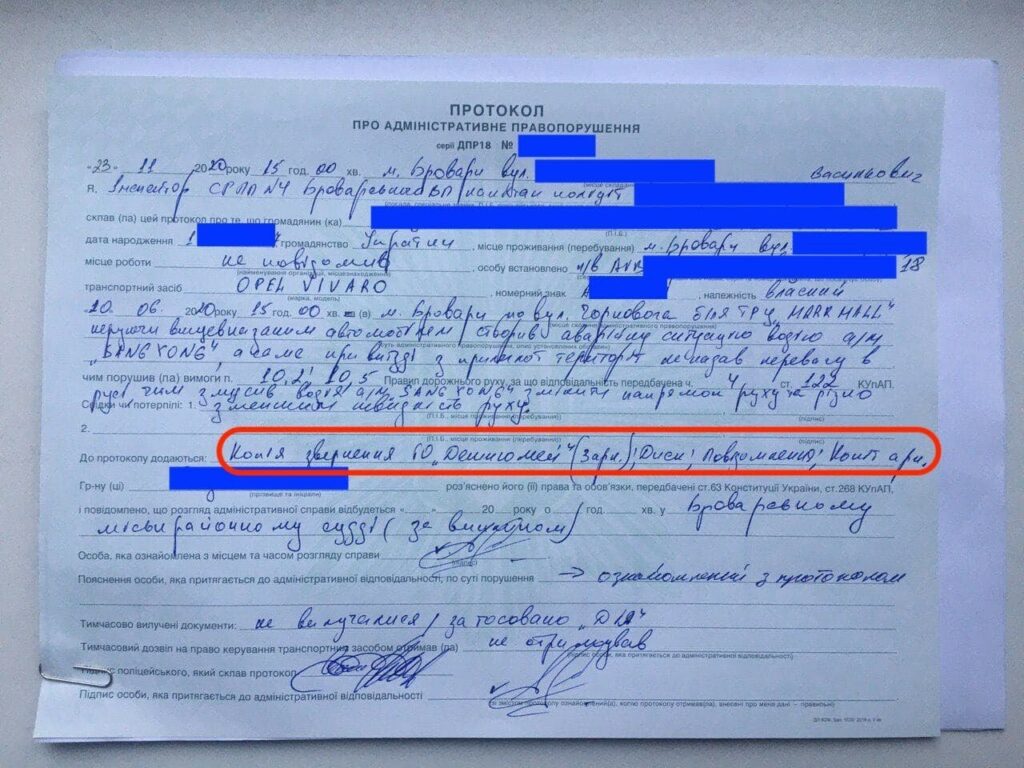 ПРОТОКОЛ
ПРО АДМІНІСТРАТИВНЕ ПРАВОПОРУШЕННЯ
серії ДПР18 №
"23" 11 2020 року 15 год. 00 хв. м. Бровари вул. Василкович
Я, Інспектор СРПП №4 Броварського ВП капітан поліції
склав (ла) цей протокол про те, що громадянин (ка)
(П.І.Б.)
дата народження 1 , громадянство України , місце проживання (перебування) м. Бровари вул.
місце роботи не повідомив , особу встановлено п/в 18
(найменування організації, місцезнаходження)
транспортний засіб OPEL VIVARO , номерний знак А , належність власний
(марка, модель)
20 року 15 год. 00 хв. (в) м. Бровари по вул. Чорновола біля ТРЦ
керуючи вищевказаним автомобілем створив аварійну ситуацію водію а/м
"SANG YONG", а саме при виїзді з прилеглої території не надав перевагу в
чим порушив (ла) вимоги п. 10.2; 10.5 Правил дорожнього руху, за що відповідальність передбачена ч. 4 ст. 122 КУпАП.
русі чим змусив водія а/м "SANG YONG" змінити напрямок руху та різко
Свідки чи потерпілі: 1. зменшити швидкість руху.
(П.І.Б., місце проживання (перебування) (підпис)
2.
(П.І.Б., місце проживання (перебування) (підпис)
До протоколу додаються: Копія звернення ГО (Зарп.); Диск; Повідомлення;
Гр-ну (ці) роз'яснено його (її) права та обов'язки, передбачені ст.63 Конституції України, ст.268 КУпАП,
(прізвище та ініціали)
і повідомлено, що розгляд адміністративної справи відбудеться «....» 20 року о год. хв. у Броварському
міськрайонному суді (за викликом)
Особа, яка ознайомлена з місцем та часом розгляду справи
(підпис)
Пояснення особи, яка притягається до адміністративної відповідальності, по суті порушення → ознайомлений з протоколом
Тимчасово вилучені документи: не вилучалися / застосовано
Тимчасовий дозвіл на право керування транспортним засобом отримав (ла) не отримував
підпис особи, яка притягається до адміністративної відповідальності)
Підпис поліцейського, який склав протокол
Підпис особи, яка притягається до адміністративної відповідальності
(зі змістом протоколу ознайомлений(а), копію протоколу отримав(ла), внесені про мене дані – правильні)